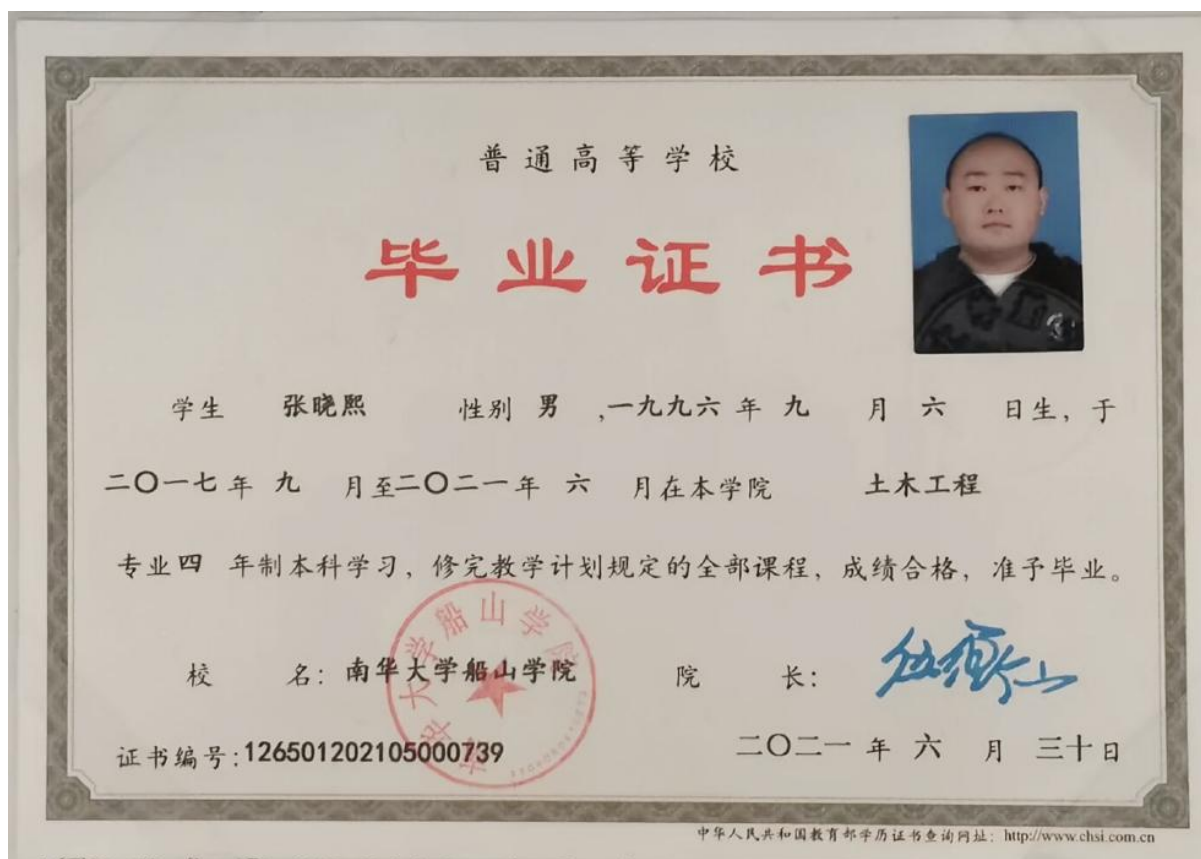 普通高等学校
毕业证书
学生 张晓熙 性别 男 ,一九九六 年 九 月 六 日生, 于
二〇一七 年 九 月至二〇二一 年 六 月在本学院 土木工程
专业 四 年制本科学习, 修完教学计划规定的全部课程, 成绩合格, 准予毕业。
校 名: 南华大学船山学院 院 长:
南华大学船山学院
证书编号:126501202105000739 二〇二一 年 六 月 三十 日
中华人民共和国教育部学历证书查询网址: http://www.chsi.com.cn